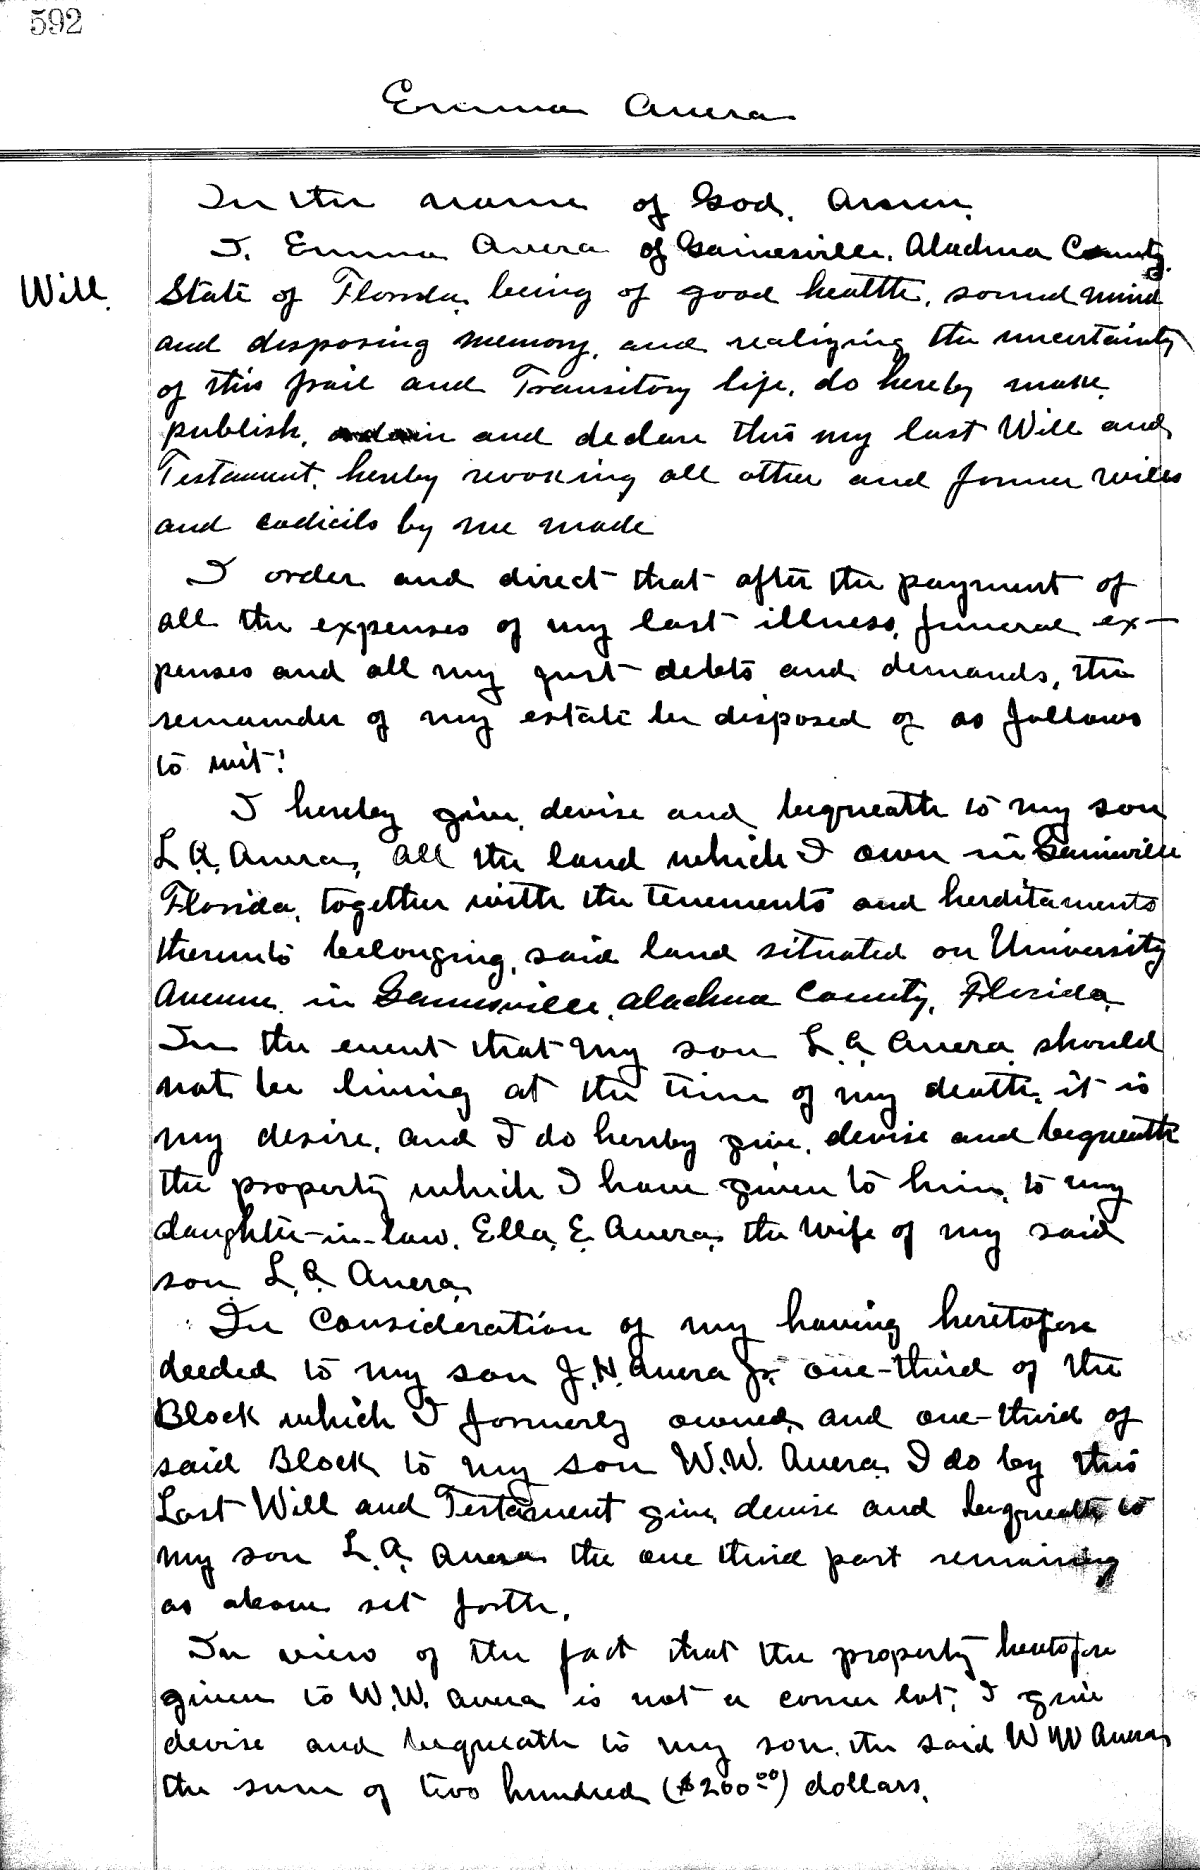 592
Emma Avera
In the name of God, Amen.
I, Emma Avera of Gainesville, Alachua County,
Will.
State of Florida, being of good health, sound mind
and disposing memory, and realizing the uncertainty
of this frail and Transitory life, do hereby make,
publish, ordain and declare this my last Will and
Testament, hereby revoking all other and former wills
and codicils by me made
I order and direct that after the payment of
all the expenses of my last illness, funeral ex-
penses and all my just debts and demands, the
remainder of my estate be disposed of as follows
to wit:
I hereby give, devise and bequeath to my son
L.A. Avera, all the land which I own in Gainesville
Florida, together with the tenements and herditaments
thereunto belonging, said land situated on University
Avenue, in Gainesville, Alachua County, Florida.
In the event that my son L.A. Avera should
not be living at the time of my death, it is
my desire, and I do hereby give, devise and bequeath
the property which I have given to him, to my
daughter-in-law, Ella, E. Avera, the wife of my said
son L.A. Avera.
In Consideration of my having heretofore
deeded to my son J.N. Avera Jr. one-third of the
Block which I formerly owned, and one-third of
said Block to my son W.W. Avera, I do by this
Last Will and Testament give, devise and bequeath to
my son L.A. Avera the one third part remaining
as above set forth.
In view of the fact that the property heretofore
given to W.W. Avera is not a corner lot, I give
devise and bequeath to my son, the said W W Avera,
the sum of two hundred ($200.00) dollars.